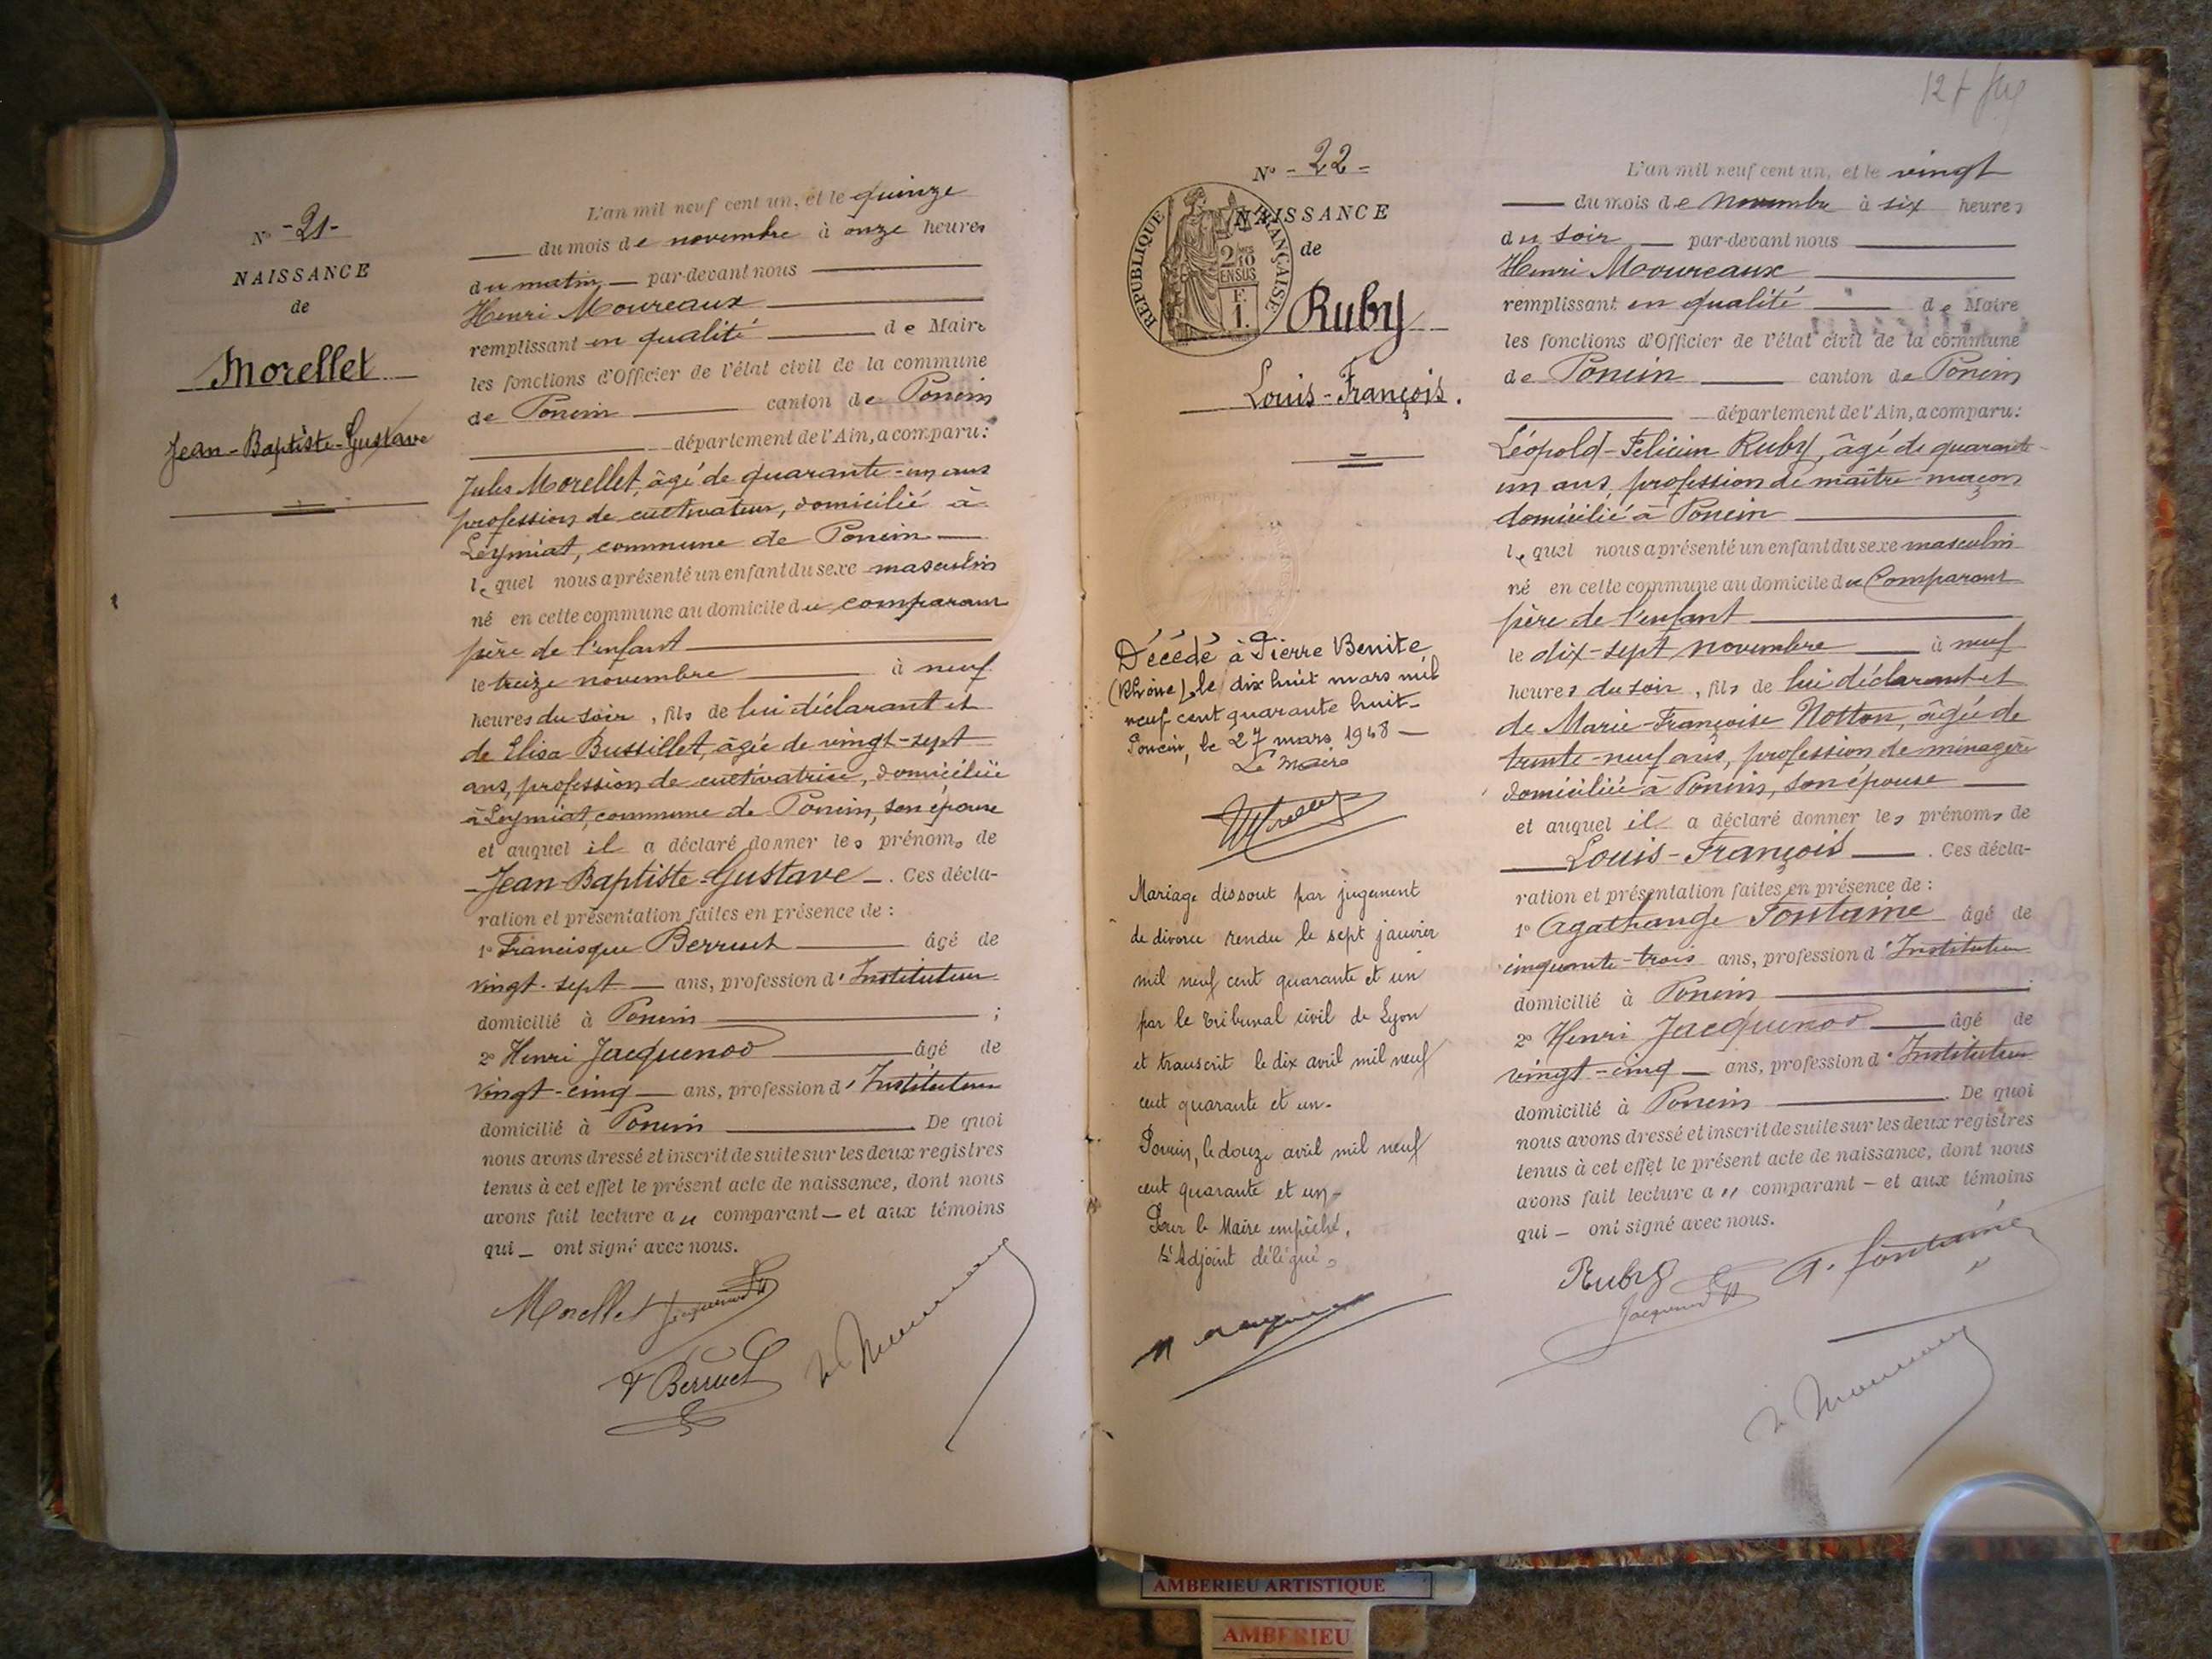 N° - 21 -
NAISSANCE
de
Morellet
Jean-Baptiste-Gustave
L'an mil neuf cent un, et le quinze
du mois de novembre à onze heures
du matin par-devant nous
Henri Moureaux
remplissant en qualité de Maire
les fonctions d'Officier de l'état civil de la commune
de Poncin canton de Poncin
département de l'Ain, a comparu:
Jules Morellet, âgé de quarante-un ans
profession de cultivateur, domicilié à
Leymiat, commune de Poncin
lequel nous a présenté un enfant du sexe masculin
né en cette commune au domicile du comparant
père de l'enfant
le treize novembre à neuf
heures du soir, fils de lui déclarant et
de Elisa Bussillet, âgée de vingt-sept
ans, profession de cultivatrice, domiciliée
à Leymiat, commune de Poncin, son épouse
et auquel il a déclaré donner les prénoms de
Jean-Baptiste-Gustave. Ces décla-
ration et présentation faites en présence de :
1° Francisque Berruet âgé de
vingt-sept ans, profession d'Instituteur
domicilié à Poncin ;
2° Henri Jacquenod âgé de
vingt-cinq ans, profession d'Instituteur
domicilié à Poncin. De quoi
nous avons dressé et inscrit de suite sur les deux registres
tenus à cet effet le présent acte de naissance, dont nous
avons fait lecture au comparant et aux témoins
qui ont signé avec nous.
Morellet Jacquenod
F Berruet
N° - 22 -
NAISSANCE
de
RÉPUBLIQUE FRANÇAISE
2 10
EN SUS
F.
1.
Ruby
Louis-François.
Décédé à Pierre Bénite
(Rhône), le dix huit mars mil
neuf cent quarante huit
Poncin, le 27 mars 1948
Le Maire
Mariage dissout par jugement
de divorce rendu le sept janvier
mil neuf cent quarante et un
par le tribunal civil de Lyon
et transcrit le dix avril mil neuf
cent quarante et un.
Poncin, le douze avril mil neuf
cent quarante et un
Pour le Maire empêché,
L'Adjoint délégué,
L'an mil neuf cent un, et le vingt
du mois de novembre à six heures
du soir par-devant nous
Henri Moureaux
remplissant en qualité de Maire
les fonctions d'Officier de l'état civil de la commune
de Poncin canton de Poncin
département de l'Ain, a comparu:
Léopold-Félicien Ruby, âgé de quarante-
un ans, profession de maître maçon
domicilié à Poncin
lequel nous a présenté un enfant du sexe masculin
né en cette commune au domicile du Comparant
père de l'enfant
le dix-sept novembre à neuf
heures du soir, fils de lui déclarant et
de Marie-Françoise Notton, âgée de
trente-neuf ans, profession de ménagère
domiciliée à Poncin, son épouse
et auquel il a déclaré donner les prénoms de
Louis-François. Ces décla-
ration et présentation faites en présence de :
1° Agathange Fontaine âgé de
cinquante-trois ans, profession d'Instituteur
domicilié à Poncin
2° Henri Jacquenod âgé de
vingt-cinq ans, profession d'Instituteur
domicilié à Poncin. De quoi
nous avons dressé et inscrit de suite sur les deux registres
tenus à cet effet le présent acte de naissance, dont nous
avons fait lecture au comparant et aux témoins
qui ont signé avec nous.
Ruby A. Fontaine
Jacquenod
AMBERIEU ARTISTIQUE
AMBERIEU